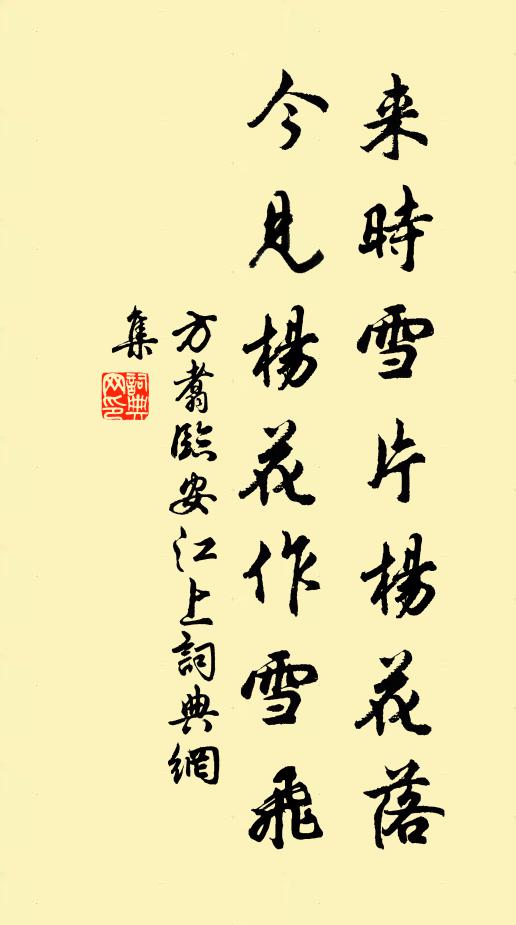 来時雪片楊花落
今見楊花作雪飛
方翥臨安江上詞典網
集
詞典网印